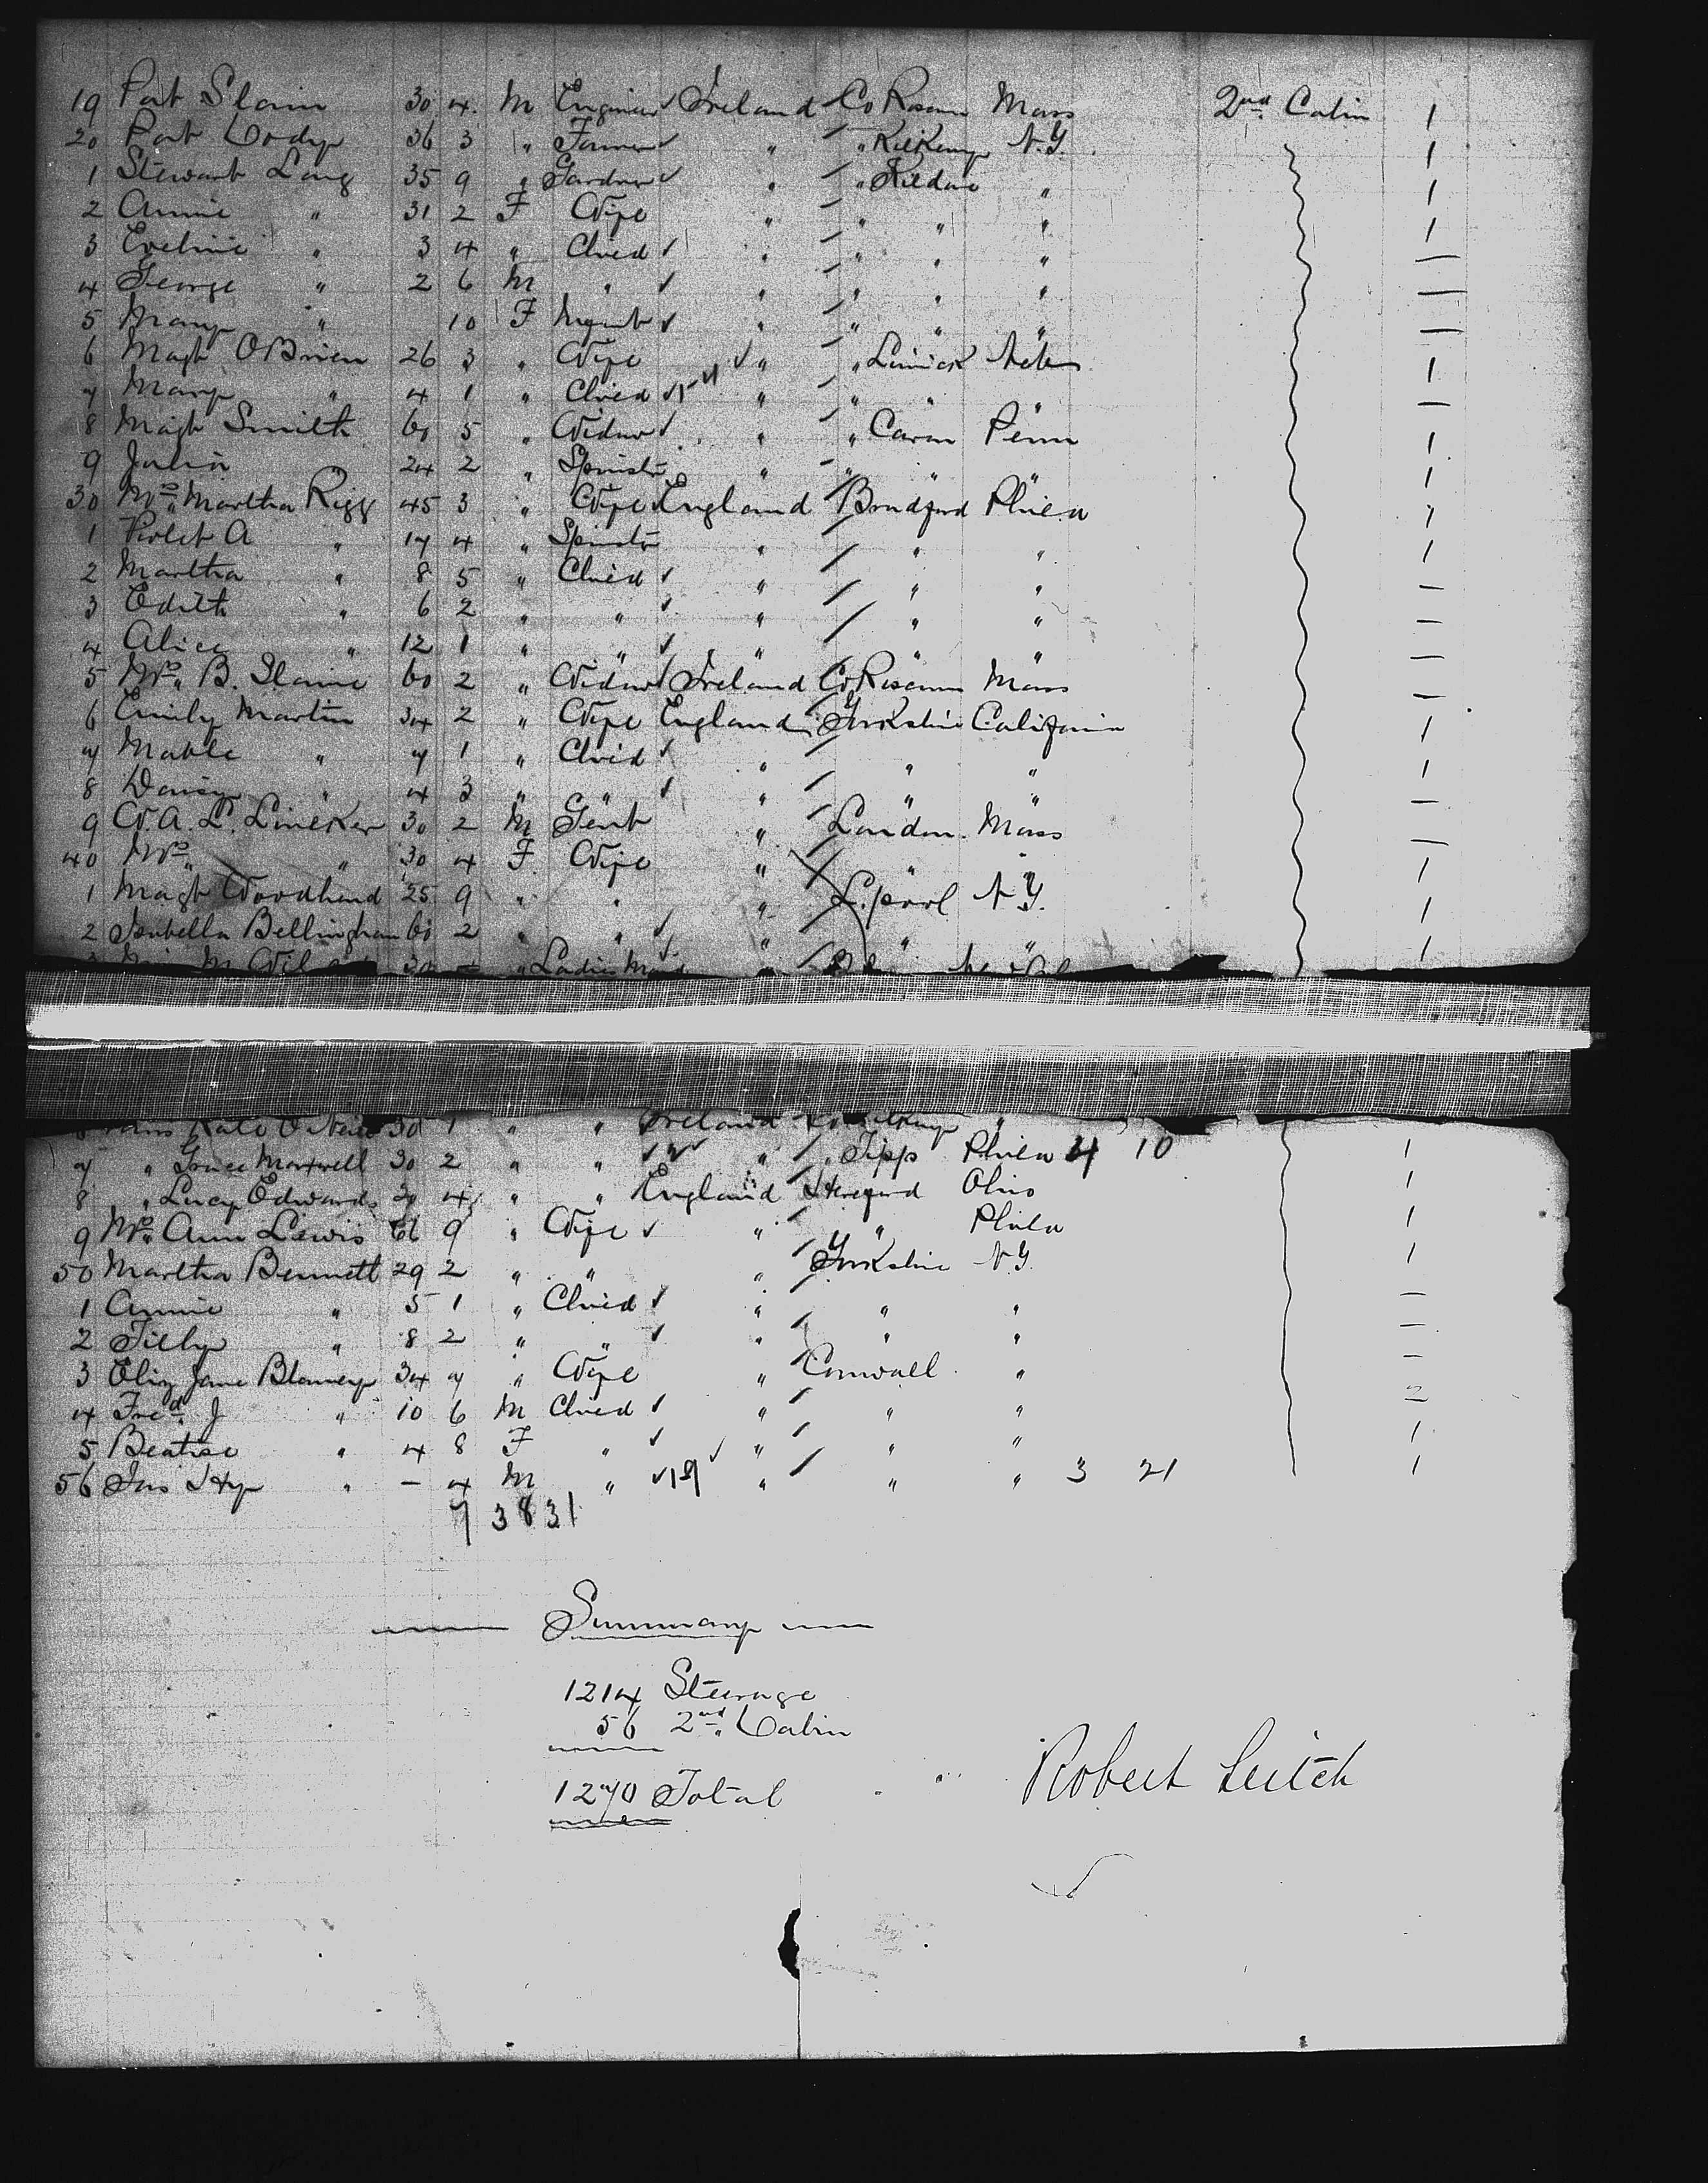 19 Pat Slavin 30 4 M Engineer Ireland Co Roscom Mass 2nd Cabin 1
20 Pat Cody 36 3 " Farmer " " Kilkeny N.Y. 1
1 Stewart Long 35 9 " Gardner " " Kildare " 1
2 Annie " 31 2 F Wife " " " " 1
3 Eveline " 3 4 " Child " " " " —
4 George " 2 6 M " " " " " —
5 Mary " 10 F Infant " " " " —
6 Magt OBrien 26 3 " Wife " " Limick 1
7 Mary " 4 1 " Child " " " " —
8 Magt Smith 60 5 " Widow " " Cavan Penn 1
9 Julia 24 2 " Spinstr " " " " 1
30 Mrs Martha Rigg 45 3 " Wife England Bradford Phila 1
1 Violet A " 17 4 " Spinstr " " " 1
2 Martha " 8 5 " Child " " " —
3 Edith " 6 2 " " " " " —
4 Alice " 12 1 " " " " " —
5 Mrs B. Slavin 60 2 " Widow Ireland Co Roscom Mass —
6 Emily Martin 34 2 " Wife England Yorkshire California 1
7 Mable " 7 1 " Child " " " 1
8 Daisy " 4 3 " " " " " —
9 W.A.L. Lineker 30 2 M Gent " London Mass —
40 Mrs " 30 4 F Wife " " 1
1 Magt Woodhead 25 9 " " " L.pool N.Y. 1
2 Isabella Bellingham 60 2 " " " " " 1
30 " Ladies Maid "
Miss Kate O'Neill 30 1 " " Ireland Co Kilkeny "
7 " Grace Maxwell 30 2 " " " " Tipp Phila 4 10 1
8 " Lucy Edwards 20 4 " " England Hereford Ohio 1
9 Mrs Ann Lewis 66 9 " Wife " " Phila 1
50 Martha Bennett 29 2 " " " Yorkshire N.Y. 1
1 Annie " 5 1 " Child " " " —
2 Tilly " 8 2 " " " " " —
3 Eliz Jane Blamey 34 7 " Wife " Cornwall " —
4 Fred J " 10 6 M Child " " " 2
5 Beatrice " 4 8 F " " " " 1
56 Jas Hy " – 4 M " 19 " " " 3 21 1
7 3 8 31
Summary
1214 Steerage
56 2nd Cabin
1270 Total
Robert Leitch